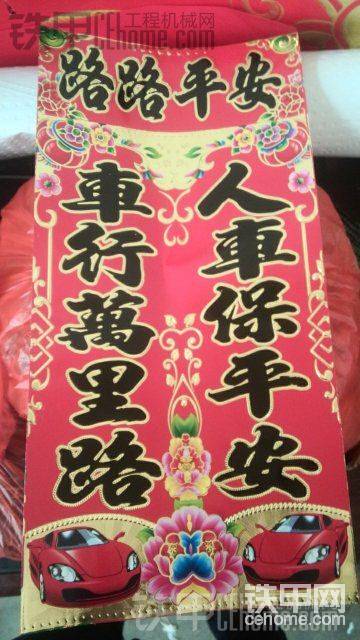 铁甲工程机械网
cehome.com
路路平安
車行萬里路
人車保平安
铁甲网
cehome.com